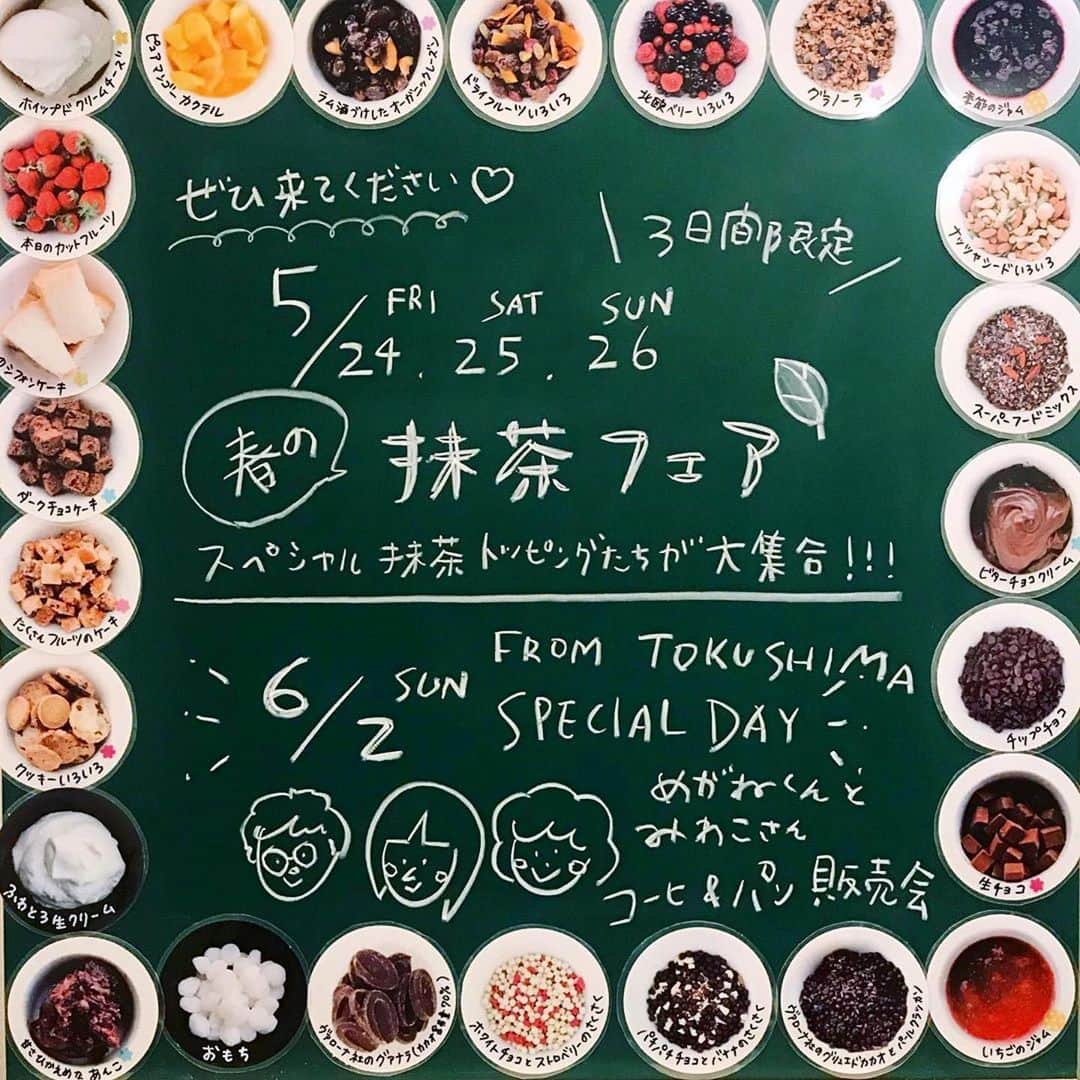 ホイップド クリームチーズ
ピュアマンゴー カクテル
ラム酒づけした オーガニックレーズン
ドライフルーツいろいろ
北欧ベリーいろいろ
グラノーラ
季節のジャム
本日のカットフルーツ
のシフォンケーキ
ダークチョコケーキ
たくさんフルーツのケーキ
クッキーいろいろ
ふわとろ生クリーム
甘さひかえめな あんこ
ぜひ来てください♡
3日間限定
5/
FRI SAT SUN
24.25.26
春の
抹茶フェア
スペシャル抹茶トッピングたちが大集合!!!
6/2 SUN
FROM TOKUSHIMA
SPECIAL DAY
めがねくんと
みわこさん
コーヒ&パン販売会
ナッツやシードいろいろ
スーパーフードミックス
ビターチョコクリーム
チップチョコ
生チョコ
いちごのジャム
おもち
ヴァローナ社のグアナラ(カカオ含有量70%)
ホワイトチョコとストロベリーのさくさく
パチパチチョコとバナナのさくさく
ヴァローナ社のグリュエドカカオとパールクラッカン